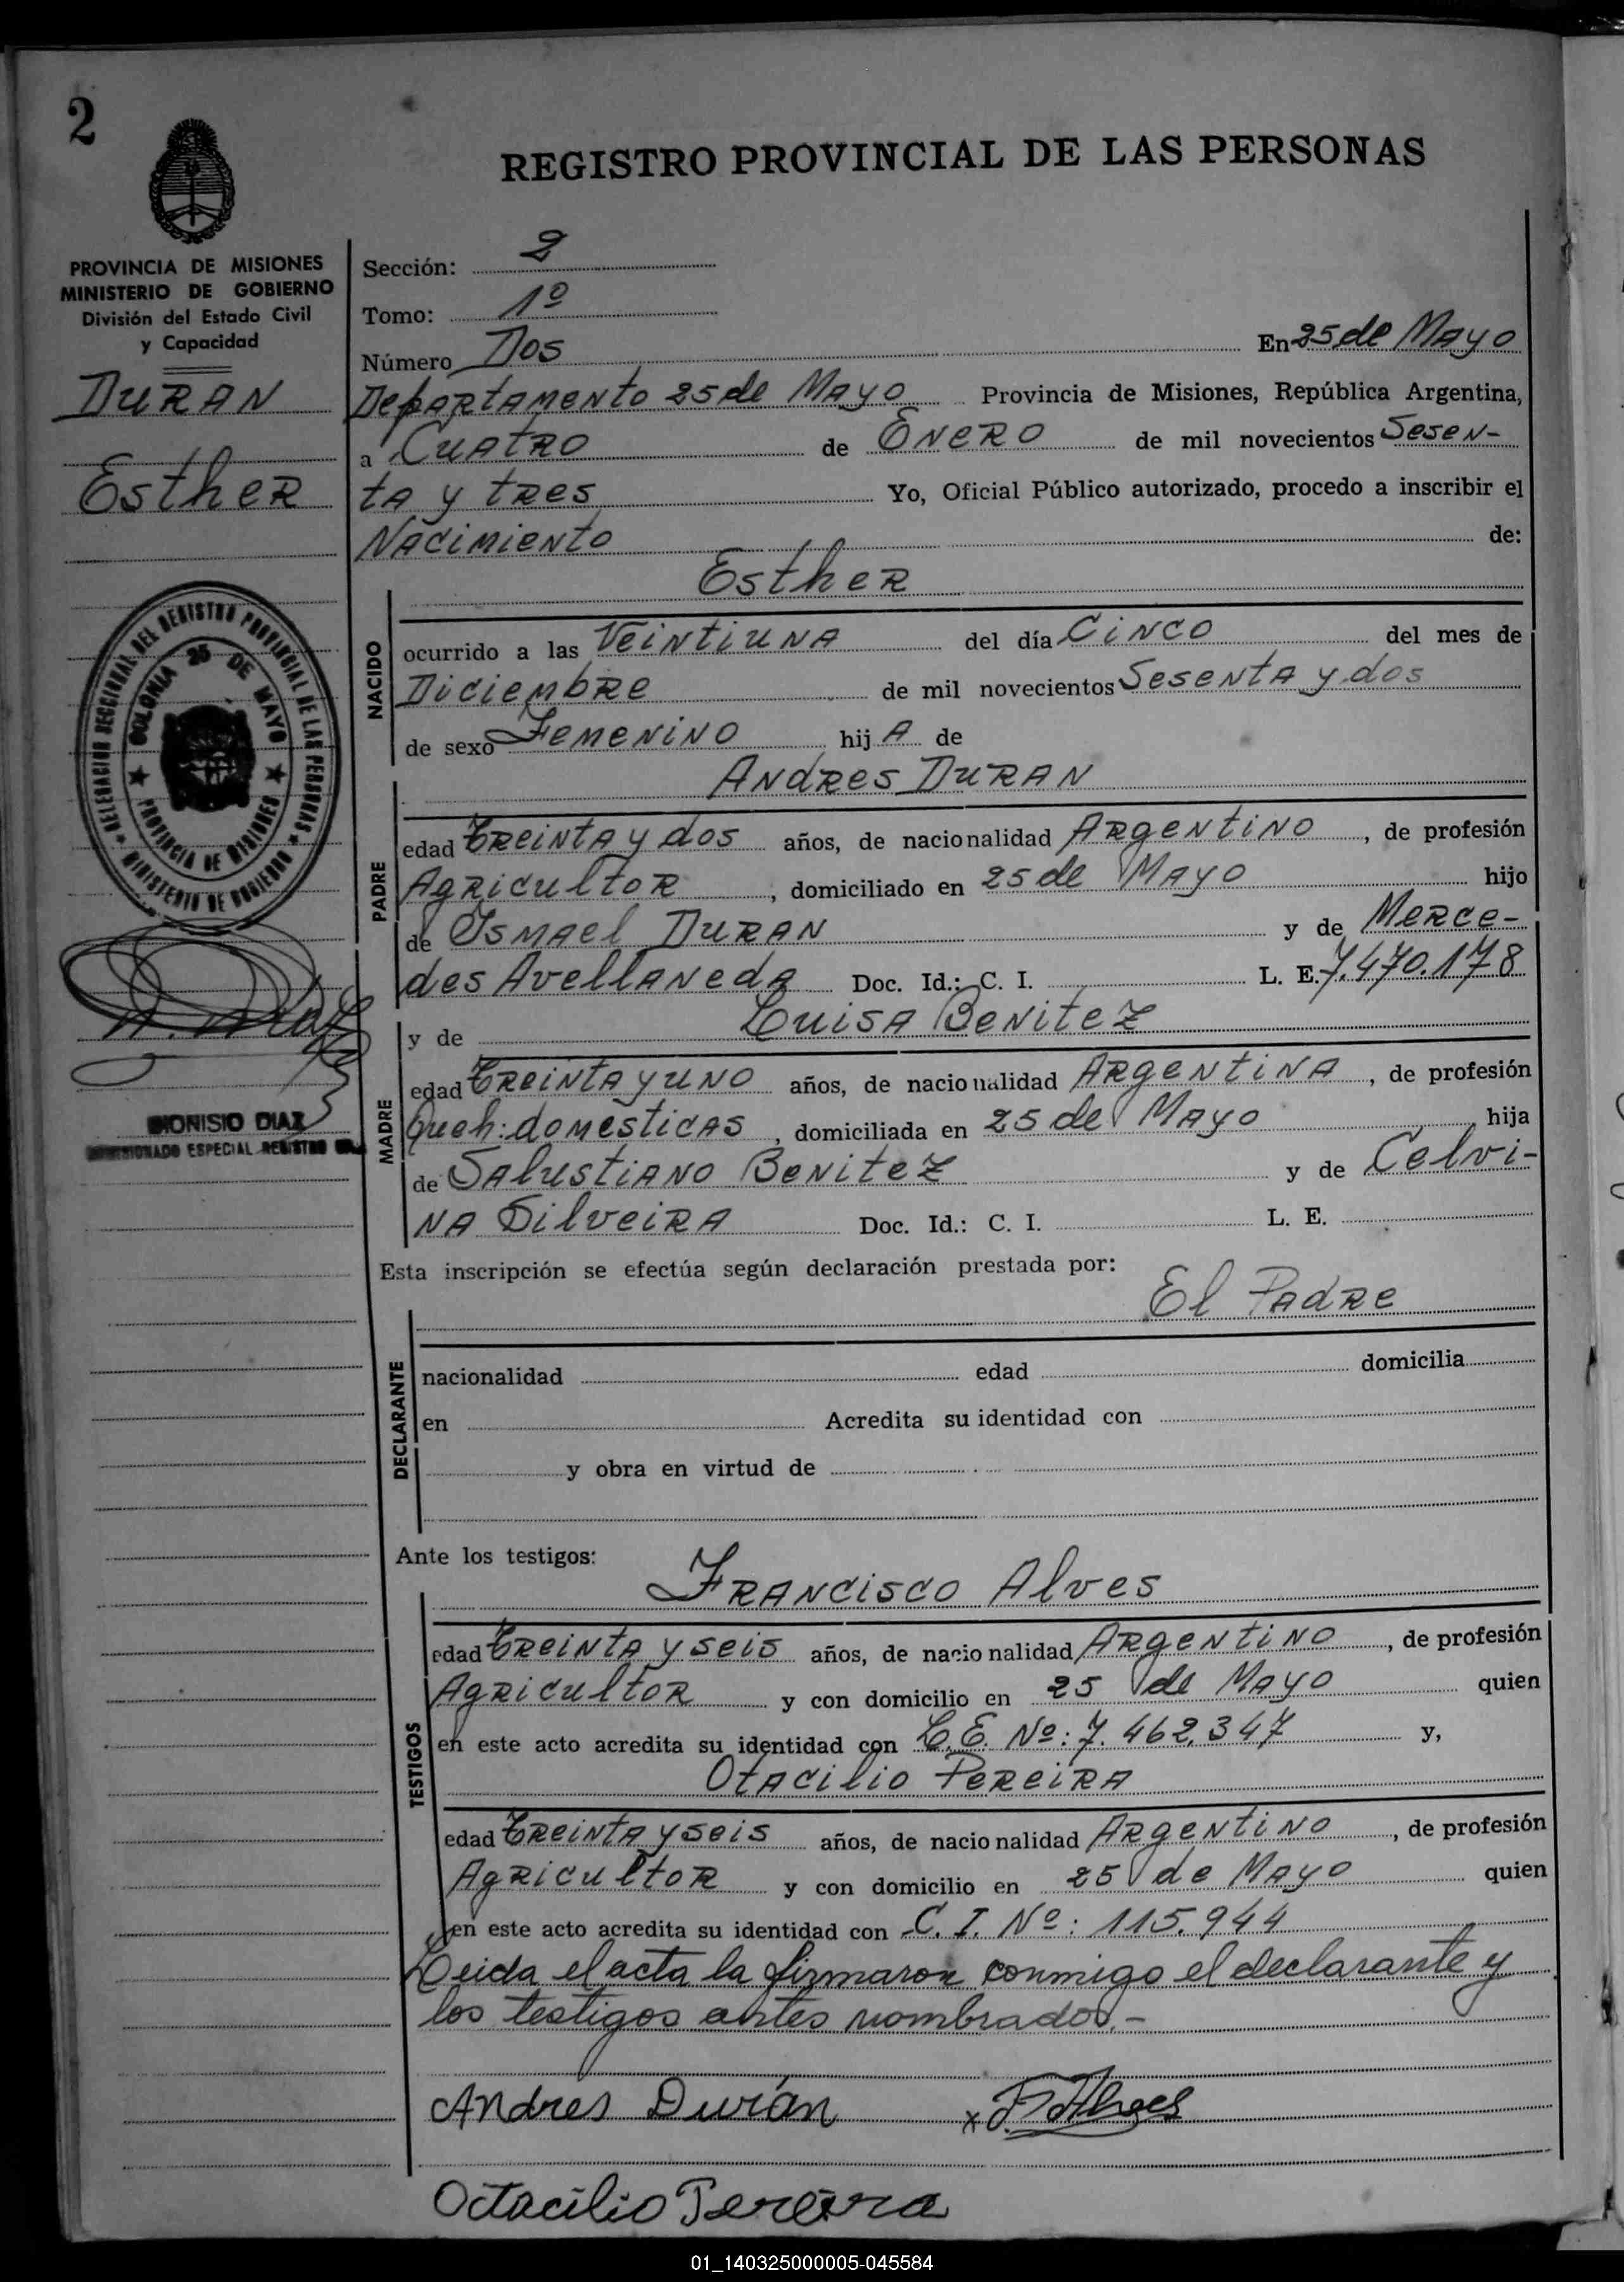 2
REGISTRO PROVINCIAL DE LAS PERSONAS
PROVINCIA DE MISIONES
MINISTERIO DE GOBIERNO
División del Estado Civil
y Capacidad
DURAN
Esther
DELEGACION SECCIONAL DEL REGISTRO PROVINCIAL DE LAS PERSONAS
★ MINISTERIO DE GOBIERNO ★
COLONIA 25 DE MAYO
★ PROVINCIA DE MISIONES ★
DIONISIO DIAZ
ESPECIAL REGISTRO
Sección: 2
Tomo: 1º
Número Dos En 25 de Mayo
Departamento 25 de Mayo Provincia de Misiones, República Argentina,
a Cuatro de Enero de mil novecientos Sesen-
ta y tres Yo, Oficial Público autorizado, procedo a inscribir el
Nacimiento de:
Esther
NACIDO
ocurrido a las Veintiuna del día Cinco del mes de
Diciembre de mil novecientos Sesenta y dos
de sexo Femenino hij A de
Andres Duran
PADRE
edad Treinta y dos años, de nacionalidad Argentino, de profesión
Agricultor, domiciliado en 25 de Mayo hijo
de Ismael Duran y de Merce-
des Avellaneda Doc. Id.: C. I. L. E. 7.470.178
y de Luisa Benitez
MADRE
edad Treinta y uno años, de nacionalidad Argentina, de profesión
Queh: domesticas, domiciliada en 25 de Mayo hija
de Salustiano Benitez y de Celvi-
na Silveira Doc. Id.: C. I. L. E.
Esta inscripción se efectúa según declaración prestada por:
El Padre
DECLARANTE
nacionalidad edad domicilia
en Acredita su identidad con
y obra en virtud de
Ante los testigos:
Francisco Alves
TESTIGOS
edad Treinta y seis años, de nacionalidad Argentino, de profesión
Agricultor y con domicilio en 25 de Mayo quien
en este acto acredita su identidad con L.E. Nº: 7.462.347 y,
Otacilio Pereira
edad Treinta y seis años, de nacionalidad Argentino, de profesión
Agricultor y con domicilio en 25 de Mayo quien
en este acto acredita su identidad con C. I. Nº: 115.944
Leida el acta la firmaron conmigo el declarante y
los testigos antes nombrados.-
Andres Durán x F. Alves
Octacílio Pereira
01_140325000005-045584